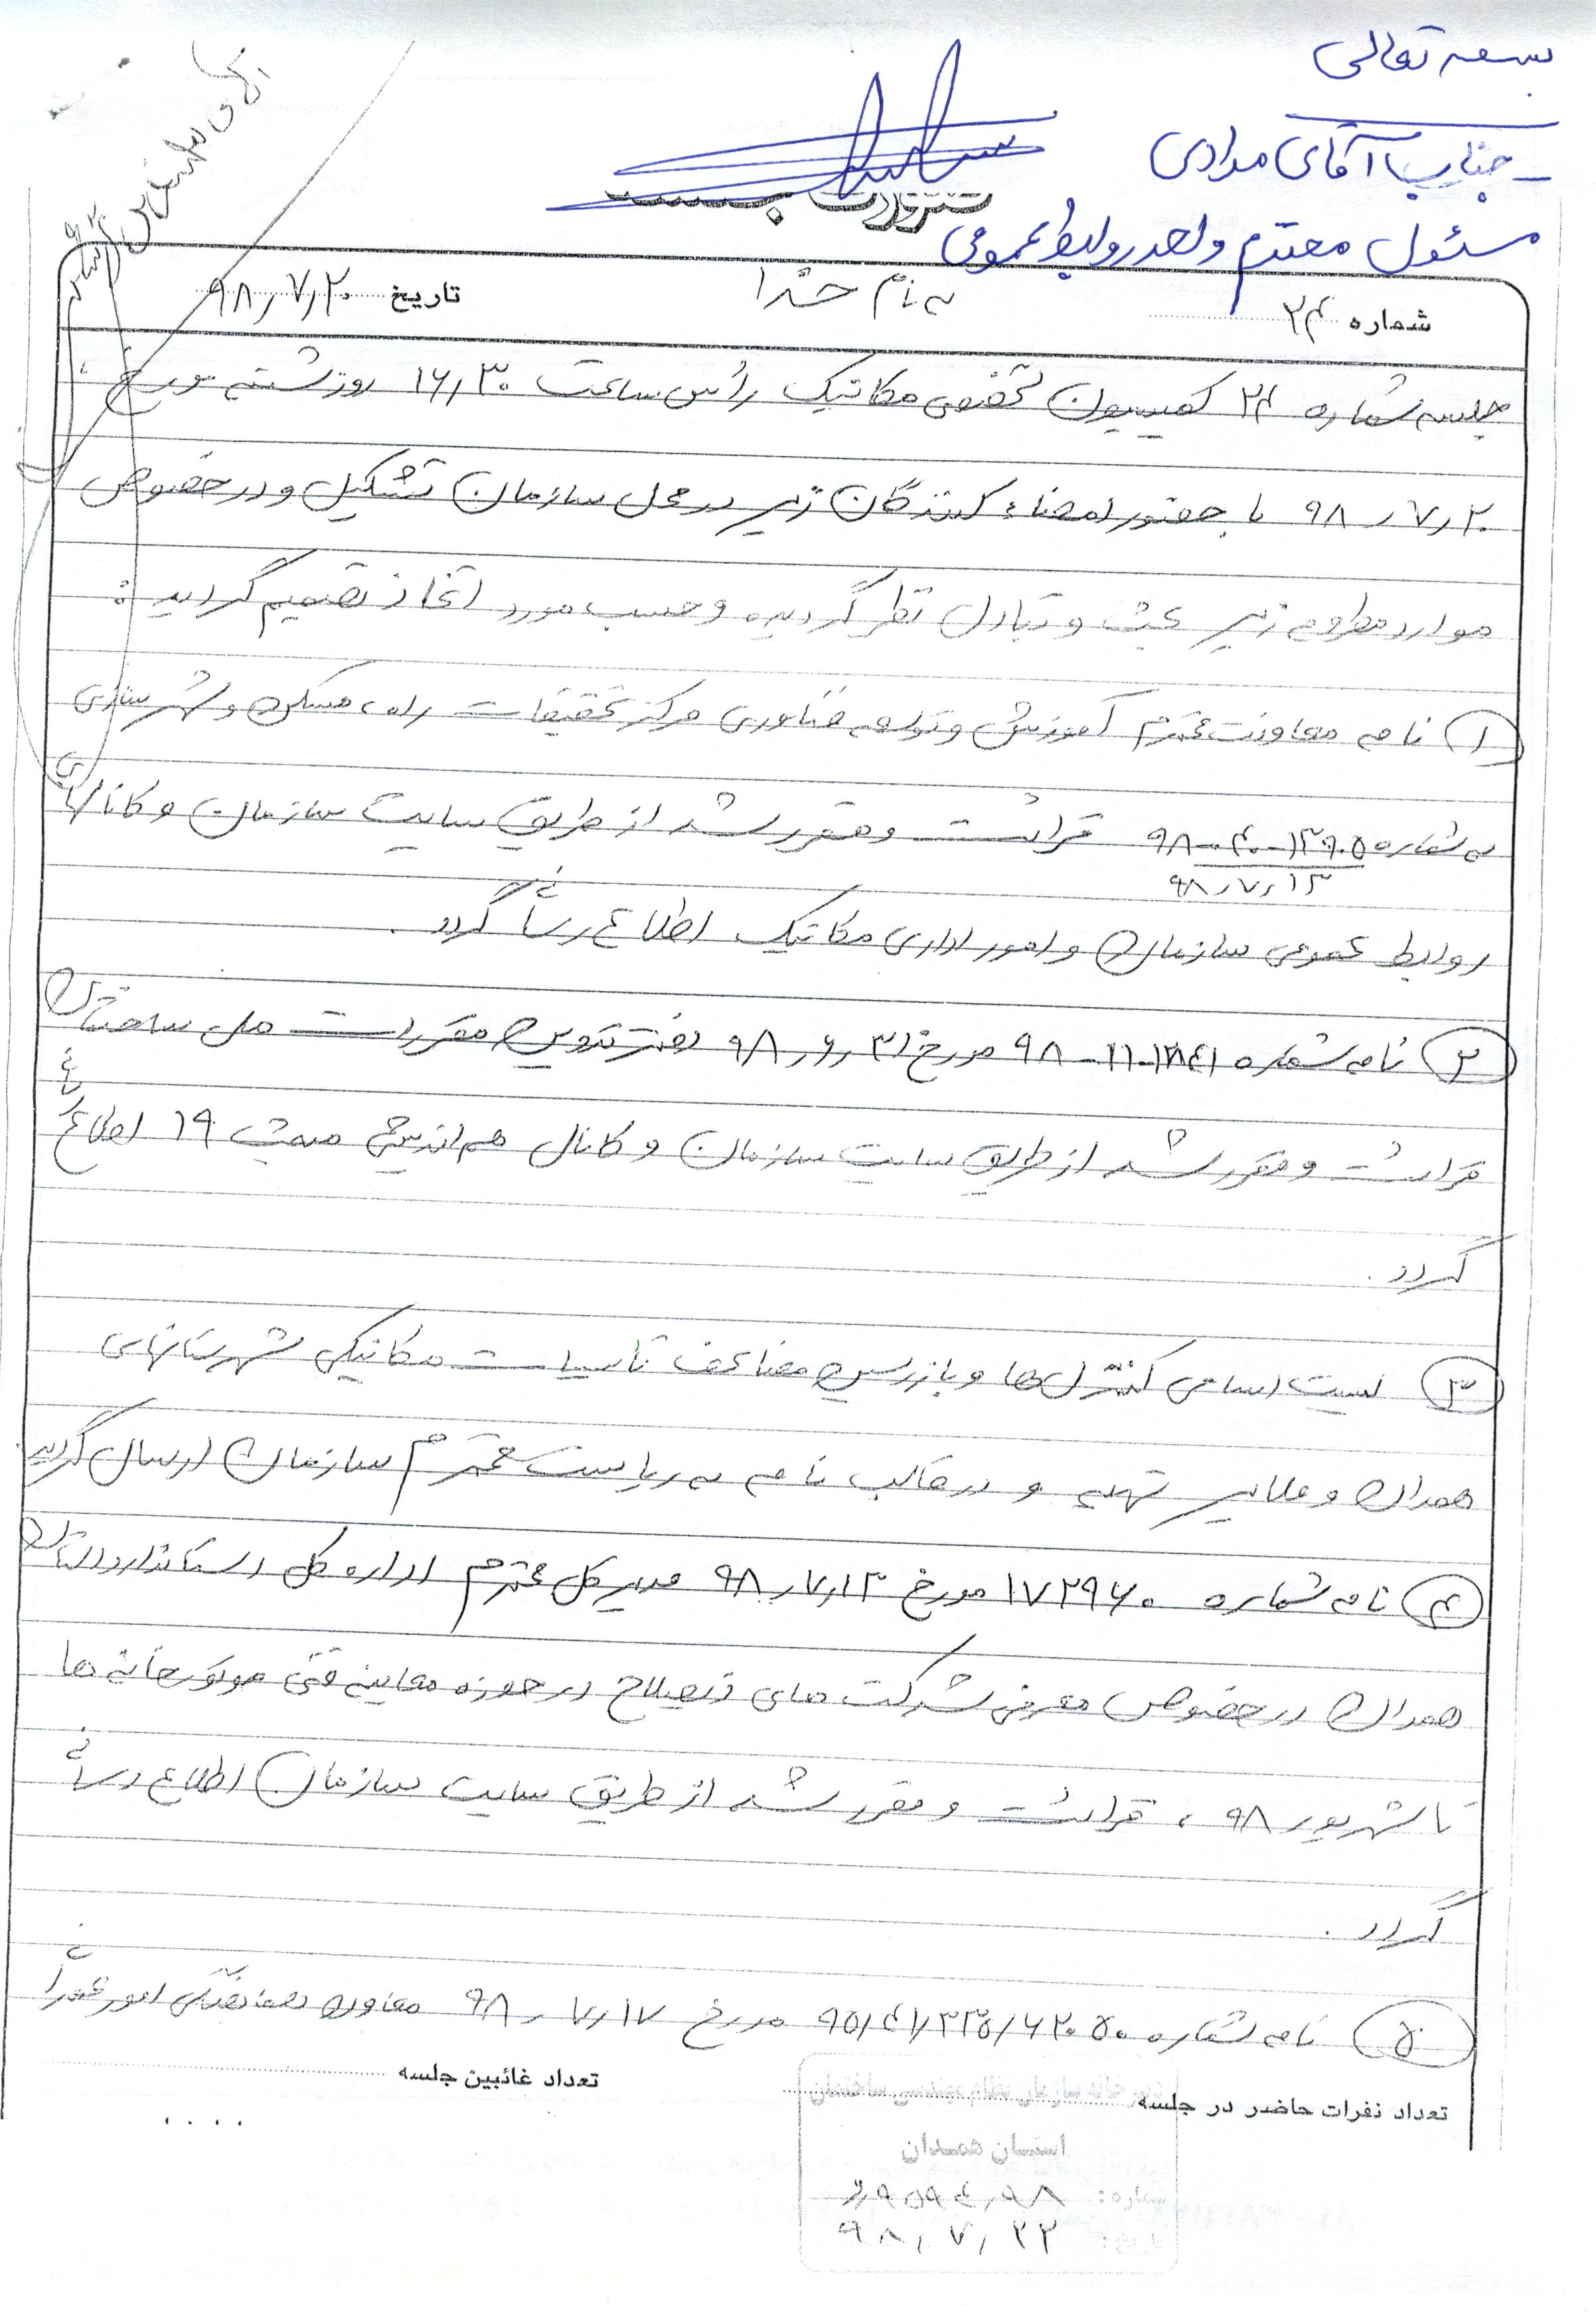 بسمه تعالی
- جناب آقای مرادی
مسئول محترم واحد روابط عمومی
به نام خدا
شماره ۲۴
تاریخ ۹۸/۷/۲۰
جلسه شماره ۲۴ کمیسیون تخصصی مکانیک رأس ساعت ۱۶/۳۰ روز شنبه مورخ
۹۸/۷/۲۰ با حضور امضاء کنندگان زیر در محل سازمان تشکیل و در خصوص
موارد مطروحه زیر بحث و تبادل نظر گردیده و حسب مورد اتخاذ تصمیم گردید :
۱ نامه معاونت محترم آموزش و توسعه فناوری مرکز تحقیقات راه، مسکن و شهرسازی
به شماره ۹۸-۴۰-۱۳۹۰۵ قرائت و مقرر شد از طریق سایت سازمان و کانالهای
۹۸/۷/۱۳
روابط عمومی سازمان و امور اداری مکانیک اطلاع رسانی گردد .
۲ نامه شماره ۹۸-۱۱-۱۸۴۱ مورخ ۹۸/۶/۳۱ دفتر تدوین مقررات ملی ساختمان
قرائت و مقرر شد از طریق سایت سازمان و کانال هم اندیشی مبحث ۱۹ اطلاع
گردد .
۳ لیست اسامی کنترل ها و بازرسین مضاعف تاسیسات مکانیکی شهرستانهای
همدان و ملایر تهیه و در قالب نامه به ریاست محترم سازمان ارسال گردید
۴ نامه شماره ۱۷۲۹۶۰ مورخ ۹۸/۷/۱۳ مدیر کل محترم اداره کل استاندارد استان
همدان در خصوص معرفی شرکت های ذیصلاح در حوزه معاینه فنی موتورخانه ها
تا شهریور ۹۸ ، قرائت و مقرر شد از طریق سایت سازمان اطلاع رسانی
گردد .
۵ نامه شماره ۹۵/۴۱/۳۳۵/۶۲۰۵۰ مورخ ۹۸/۷/۱۷ معاون هماهنگی امور عمرانی
تعداد نفرات حاضر در جلسه
تعداد غائبین جلسه
استان همدان
شماره:
۹۸/۷/۲۲